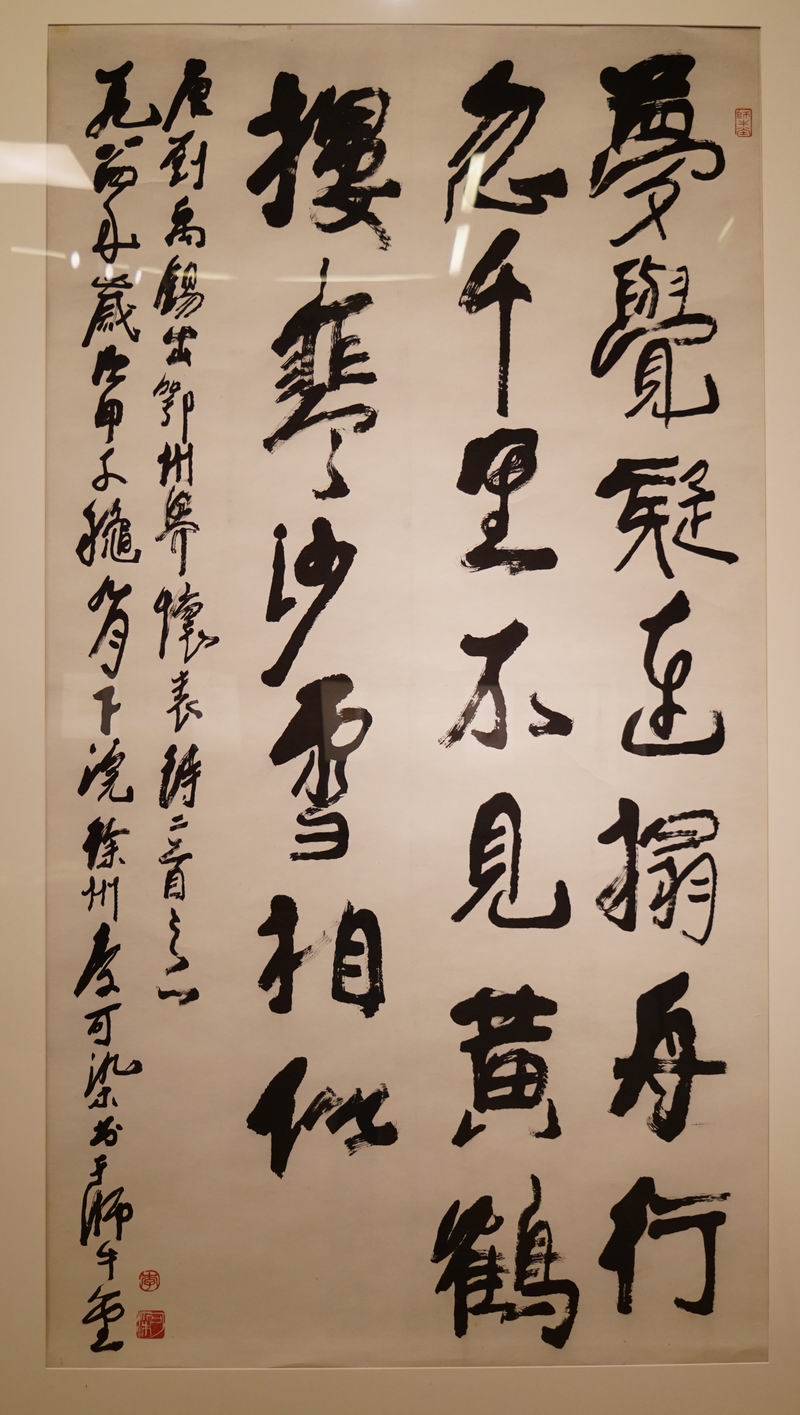 師牛堂
夢覺疑連榻舟行
忽千里不見黃鶴
樓寒沙雪相似
唐劉禹錫出鄂州界懷表詩二首之一
歲次甲子龝九月下浣徐州李可染于師牛堂
李
可染